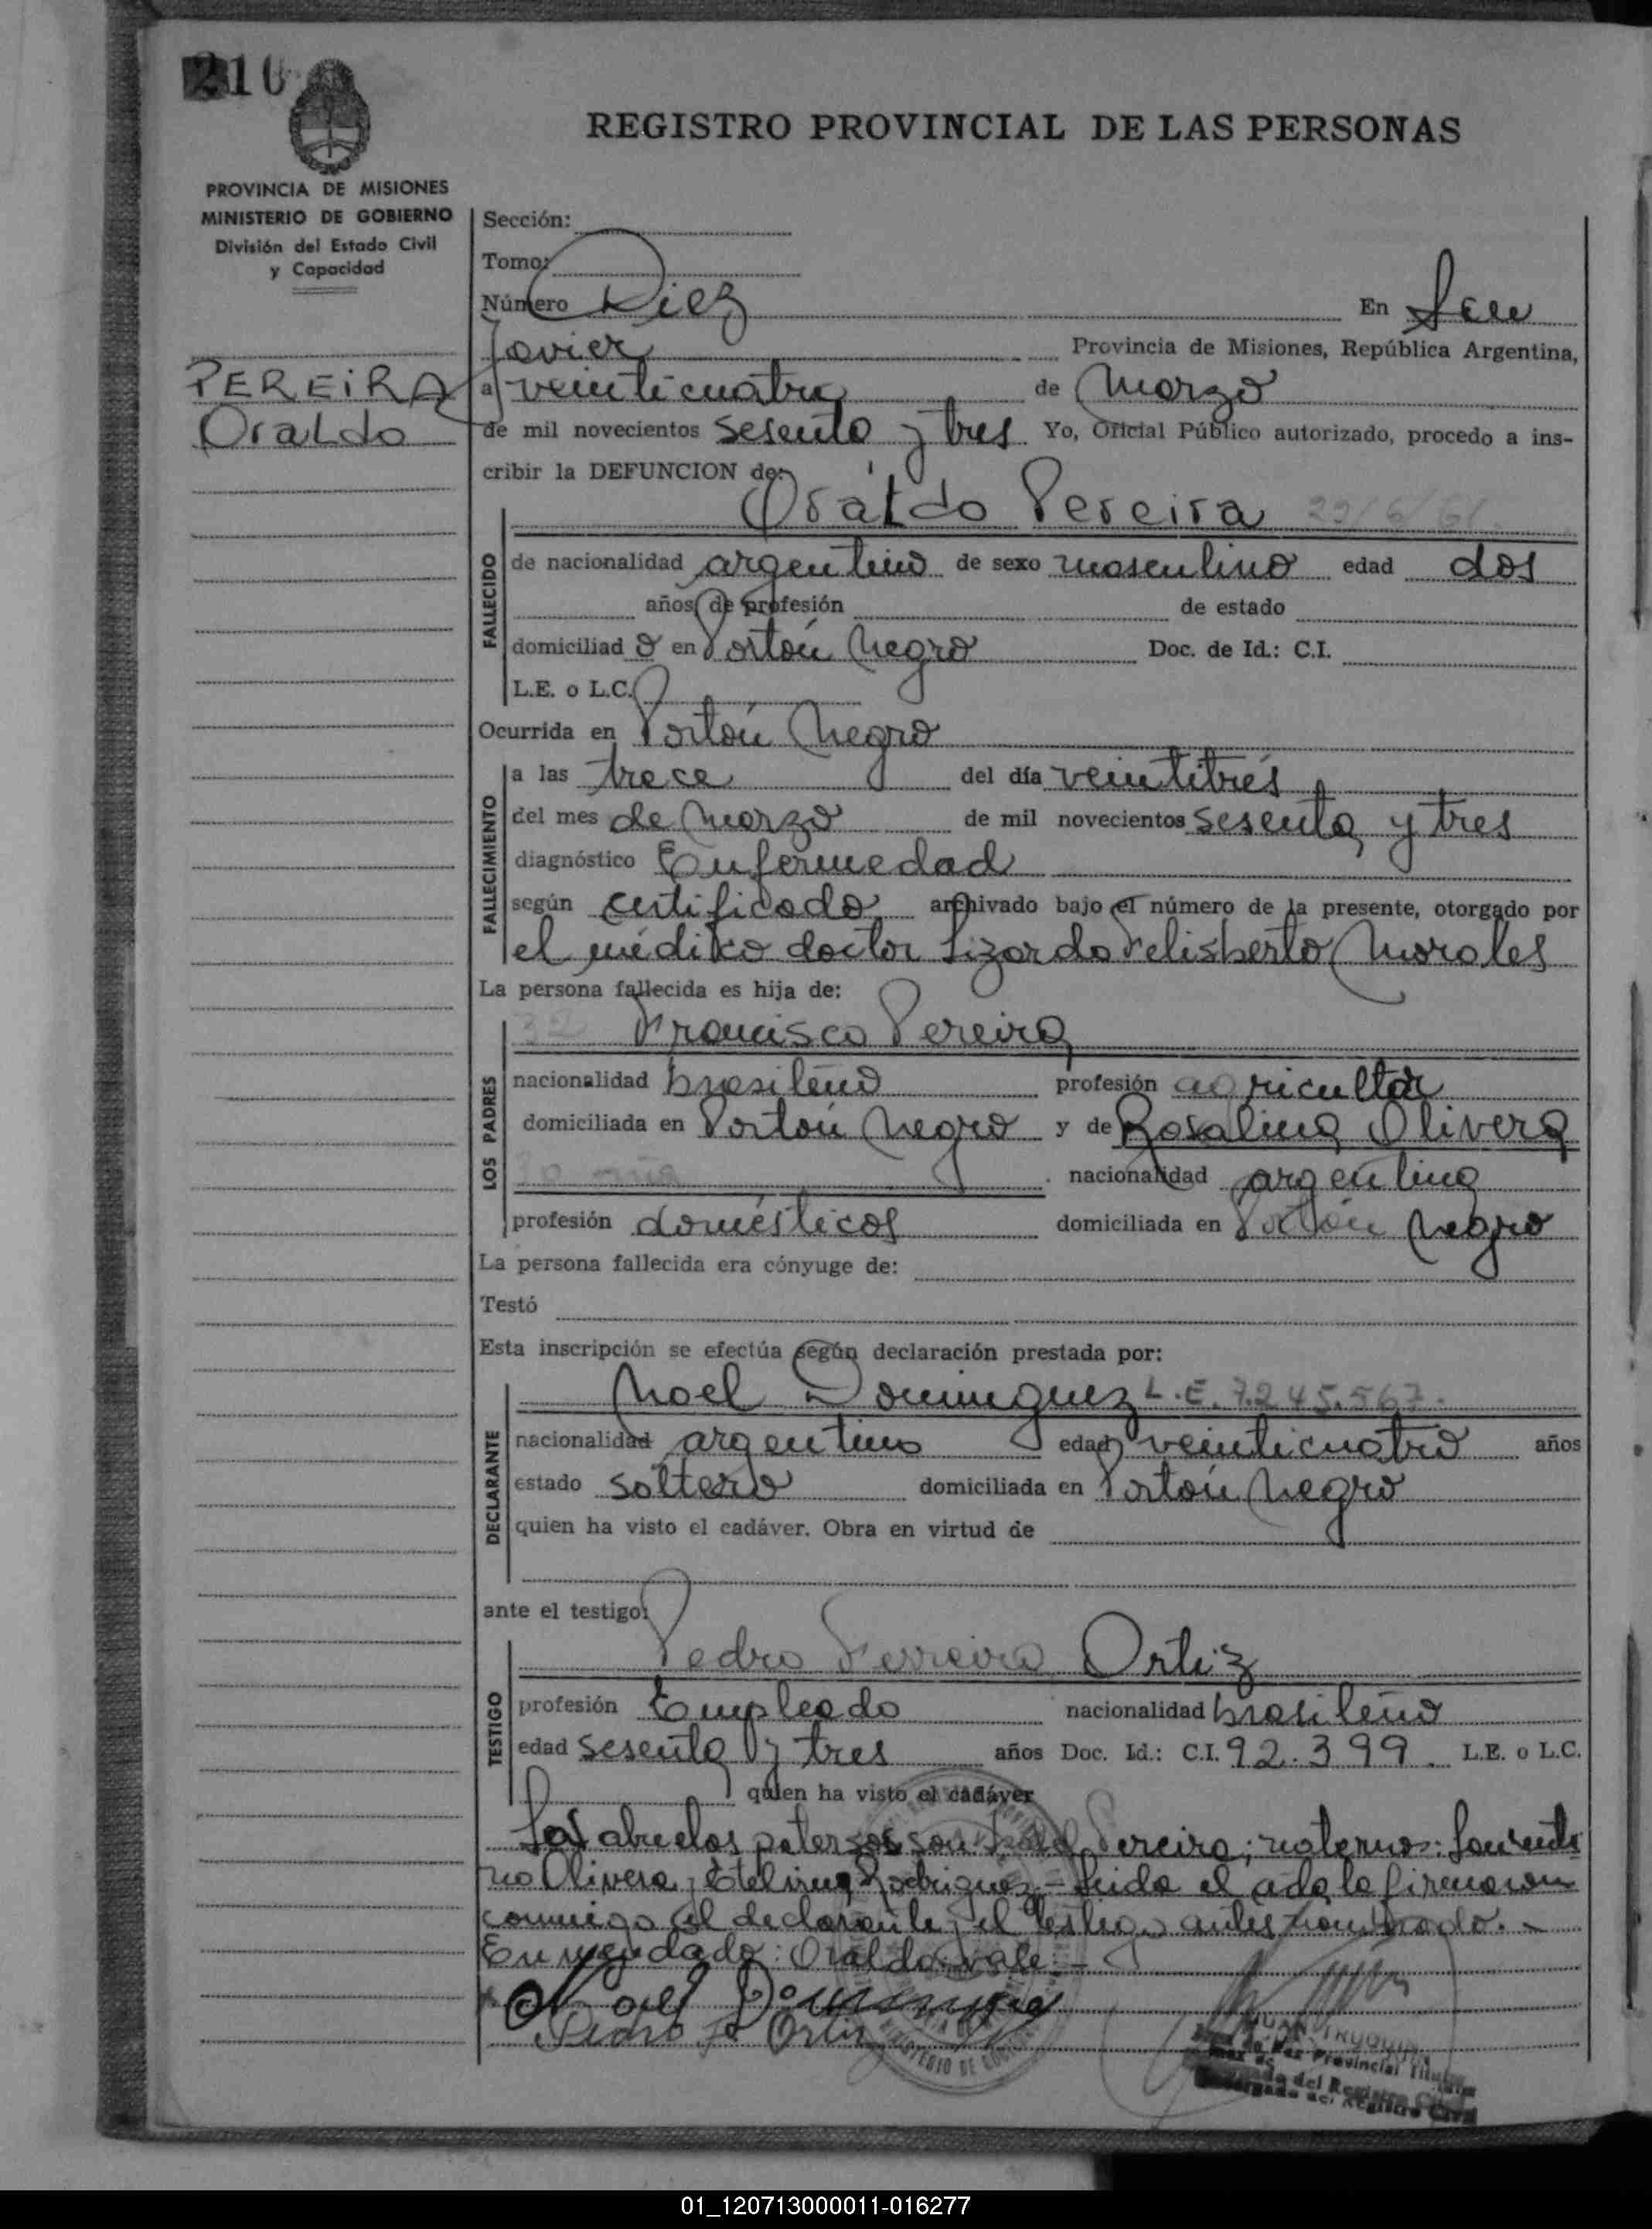 210
REGISTRO PROVINCIAL DE LAS PERSONAS
PROVINCIA DE MISIONES
MINISTERIO DE GOBIERNO
División del Estado Civil
y Capacidad
PEREIRA
Oraldo
Sección:
Tomo:
Número Diez En San
Javier Provincia de Misiones, República Argentina,
a veinticuatro de Marzo
de mil novecientos sesenta y tres Yo, Oficial Público autorizado, procedo a ins-
cribir la DEFUNCION de:
Oraldo Pereira 23/6/61.
FALLECIDO
de nacionalidad argentino de sexo masculino edad dos
años de profesión de estado
domiciliad o en Portón Negro Doc. de Id.: C.I.
L.E. o L.C.
Ocurrida en Portón Negro
FALLECIMIENTO
a las trece del día veintitrés
del mes de Marzo de mil novecientos sesenta y tres
diagnóstico Enfermedad
según certificado archivado bajo el número de la presente, otorgado por
el médico doctor Lizardo Felisberto Morales
La persona fallecida es hija de:
LOS PADRES
32 Francisco Pereira
nacionalidad brasileño profesión agricultor
domiciliada en Portón Negro y de Rosalina Olivera
30 nacionalidad argentina
profesión domésticos domiciliada en Portón Negro
La persona fallecida era cónyuge de:
Testó
Esta inscripción se efectúa según declaración prestada por:
DECLARANTE
Noel Dominguez L.E. 7.245.567.
nacionalidad argentino edad veinticuatro años
estado soltero domiciliada en Portón Negro
quien ha visto el cadáver. Obra en virtud de
ante el testigo:
TESTIGO
Pedro Ferreira Ortiz
profesión Empleado nacionalidad brasileño
edad sesenta y tres años Doc. Id.: C.I. 92.399. L.E. o L.C.
quien ha visto el cadáver
Los abuelos paternos son Pereira; materno:
no Olivera y Etelvina Rodriguez.- Leida el acta la firmaron
conmigo el declarante y el testigo antes nombrado.-
Enmendado: Oraldo: vale:-
Noel Dominguez
Pedro F. Ortiz
JUAN
Juez de Paz Provincial Titular
Encargado del Registro Civil
01_120713000011-016277